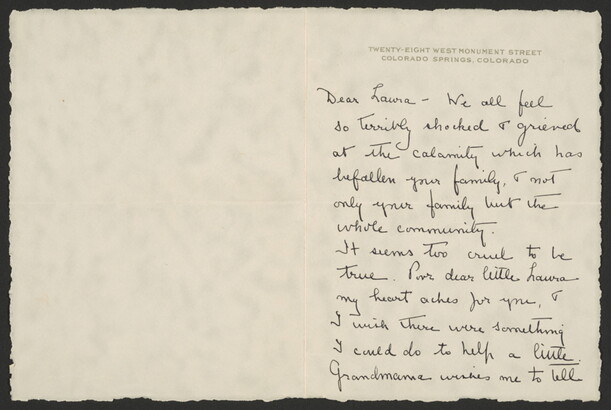 TWENTY-EIGHT WEST MONUMENT STREET
COLORADO SPRINGS, COLORADO
Dear Laura - We all feel
so terribly shocked & grieved
at the calamity which has
befallen your family, & not
only your family but the
whole community.
It seems too cruel to be
true. Poor dear little Laura
my heart aches for you, &
I wish there were something
I could do to help a little.
Grandmama wishes me to tell